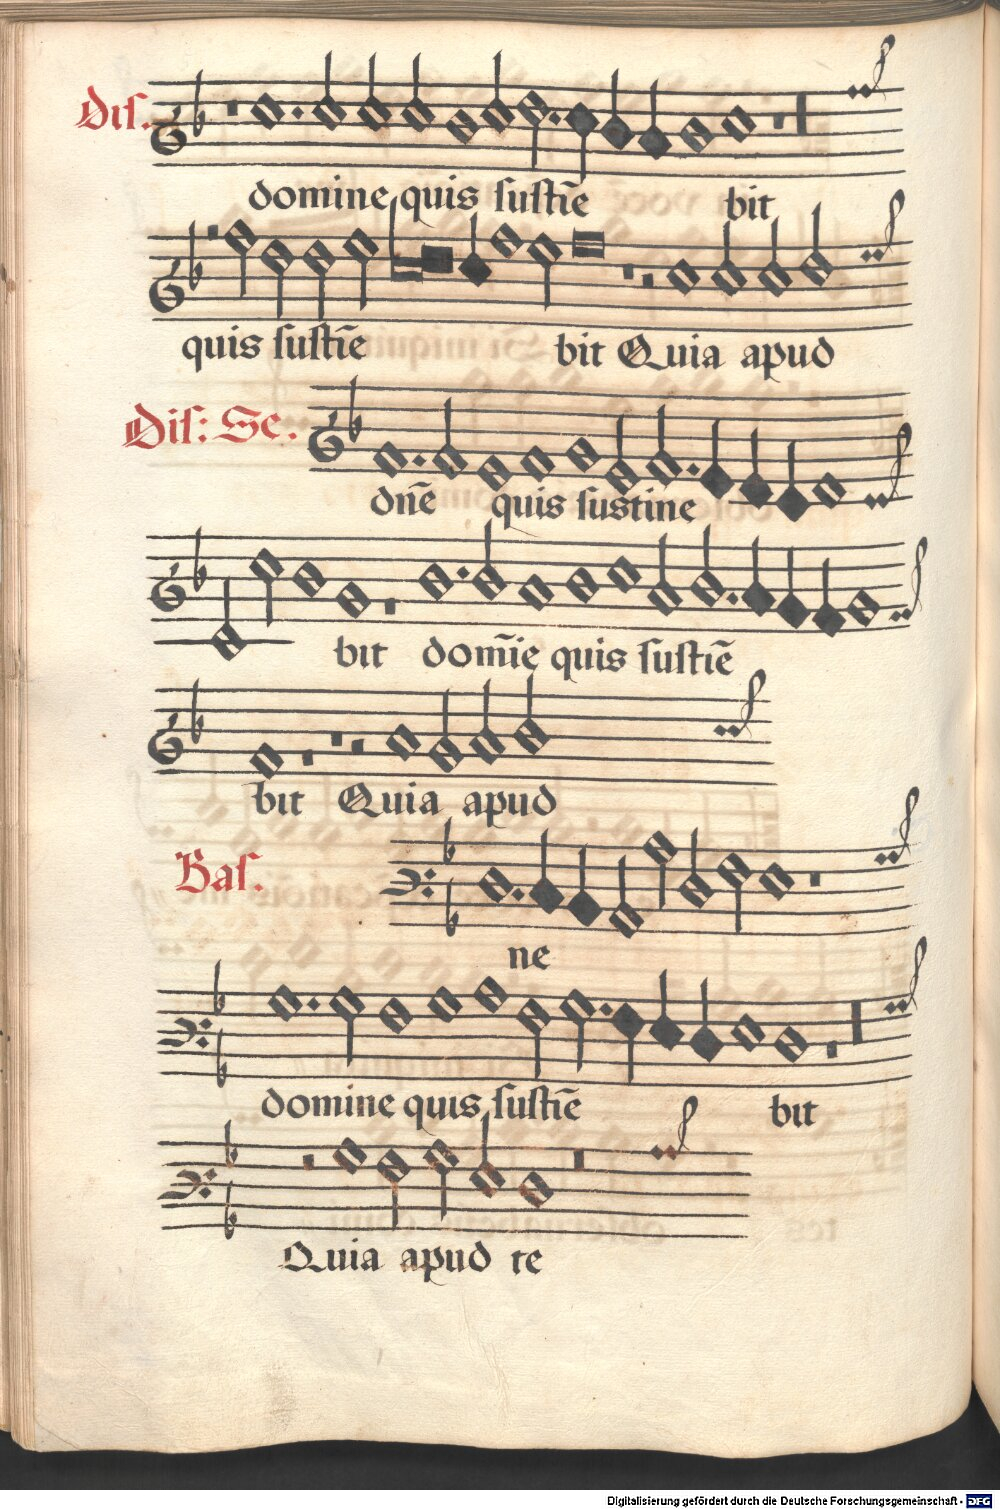 Dis.
domine quis sustiē bit
quis sustiē bit Quia apud
Dis: Se.
dn̄e quis sustine
bit dom̄ie quis sustiē
bit Quia apud
Bas.
ne
domine quis sustiē bit
Quia apud te
Digitalisierung gefördert durch die Deutsche Forschungsgemeinschaft - DFG